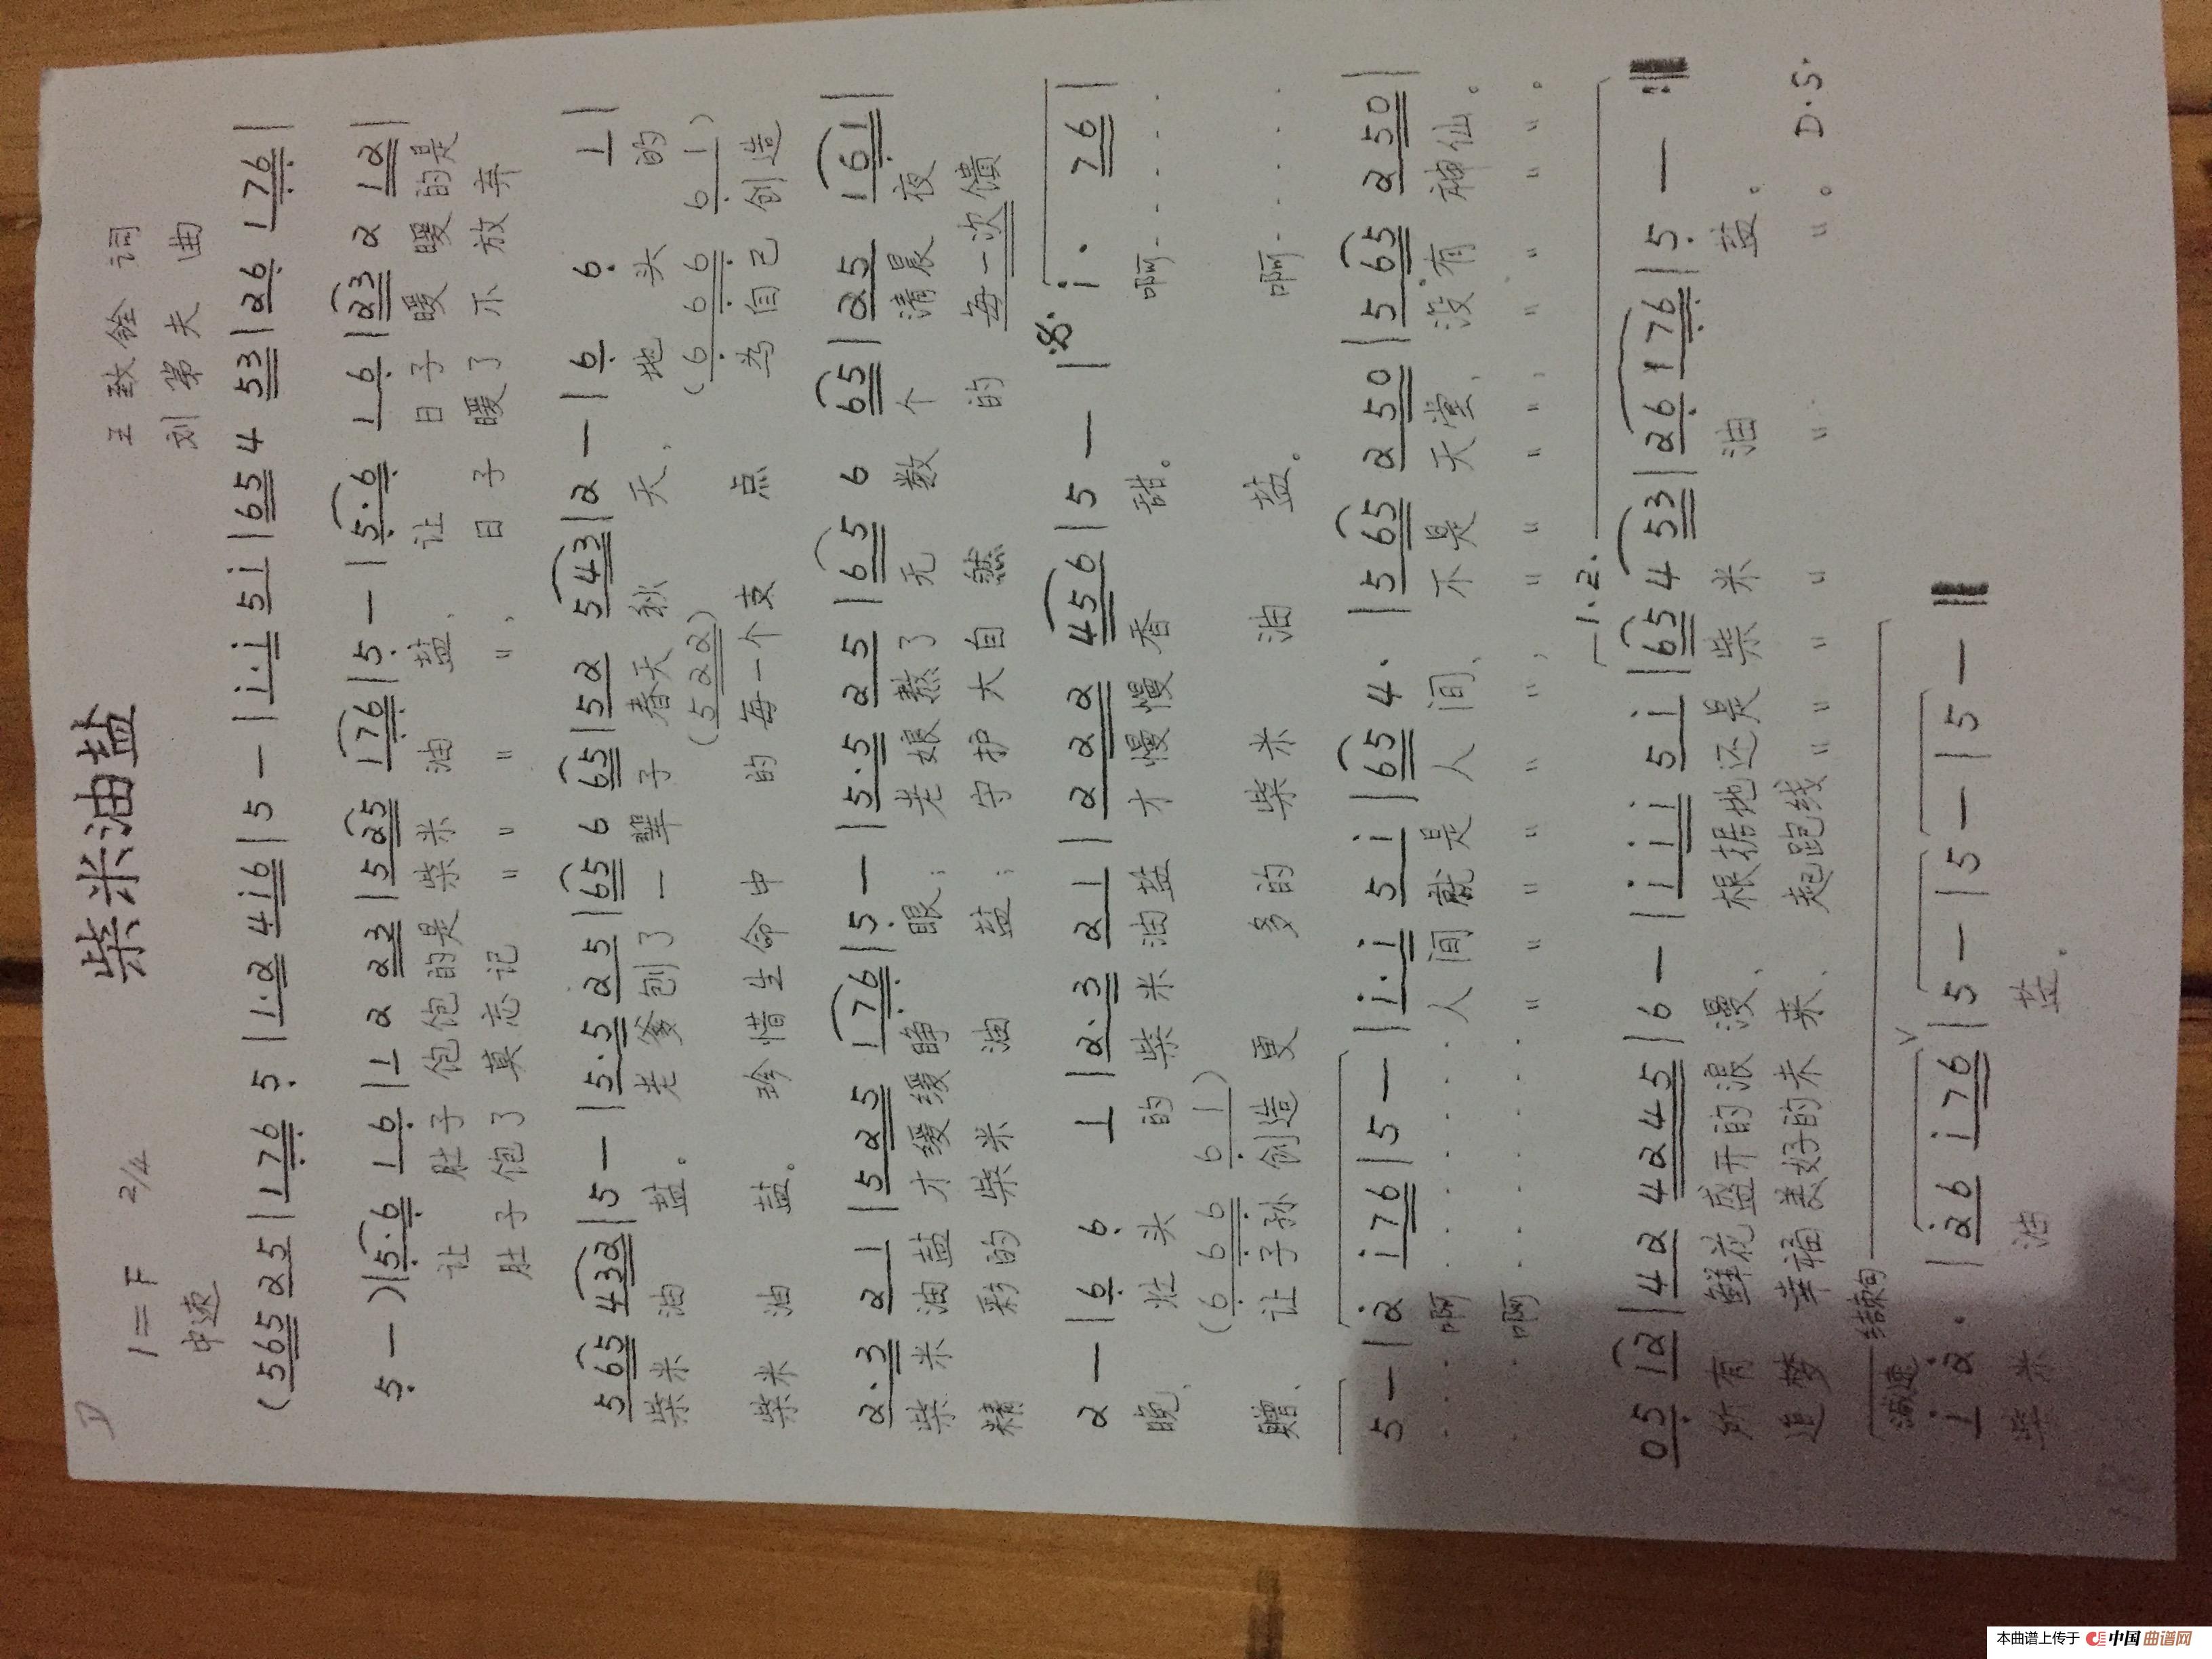 柴米油盐
1=F 2/4
中速
王致铨 词
刘第夫 曲
(565 25 | 176 5 | 1·2 4i6 | 5 — | i·i 5i | 654 53 | 26 176 |
5 — ) | 5·6 16 | 1 2 23 | 5 25 176 | 5 — | 5·6 16 | 23 2 12 |
让 肚子 饱 饱的是 柴 米 油 盐、 让 日子 暖 暖的是
肚子饱了 莫 忘记 " " " "、 日子 暖了 不 放弃
565 432 | 5 — | 5·5 25 | 65 6 65 | 52 543 | 2 — | 6 6 1 |
柴米 油 盐。 老爹刨了 一 辈 子 春天 秋 天、 地 头 的
(522) (666 61)
柴米 油 盐。 珍惜生命中 的 每一个 支 点 为 自己 创造
2·3 21 | 5 25 176 | 5 — | 5·5 25 | 65 6 65 | 25 161 |
柴米油盐 才缓缓 睁 眼; 老娘熬了 无 数 个 清晨 夜
精彩的 柴米 油 盐; 守护大自然 的 每一次馈
2 — | 6 6 1 | 2·3 21 | 22 2 456 | 5 — | i· 76 |
晚、 灶头 的 柴米油盐 才慢慢 香 甜。 啊· · · ·
(666 61)
赠、 让子孙创造 更 多的 柴米 油 盐。 啊· · · ·
5 — | 2 i76 | 5 — | i·i 5i | 65 4· | 5 65 2 50 | 5 65 2 50 |
· · 啊 · · · · · 人间就是 人 间、 不是 天堂、 没有 神仙。
· · 啊 · · · · · " " " " " "、 " " " "、 " " " "。
05 12 | 42 4245 | 6 — | i i i 5 i | 65 4 53 | 26 176 | 5 — :‖
1.2.
所有 鲜花盛开的浪漫、 根据地还是 柴 米 油 盐。
追梦 幸福美好的未来、 起跑线" " " " " "。 D.S.
渐速 结束句
i 2· | 26 i76 | 5 — | 5 — | 5 — ‖
柴 米 油 盐。
本曲谱上传于 中国曲谱网